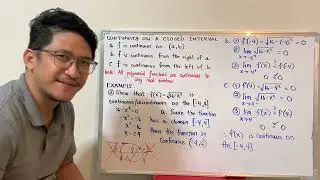 CONTINUITY ON A CLOSED INTERVAL
a. f is continuous on (a,b).
b. f is continuous from the right of a.
c. f is continuous from the left of b.
Note: All polynomial functions are continuous to
any real number
EXAMPLE:
① Show that f(x) = √16-x² is
continuous/discontinuous on the [-4,4].
16-x²=0
a. Since the function
-x²=-16
has a domain [-4,4]
x²=16
then the function is
x=±4
continuous (-4,4)
b. ① f(-4) = √16-(-4)² = 0
② lim √16-x² = 0
③ lim f(x) = f(-4)
0 = 0
c. ① f(4) = √16-4² = 0
② lim √16-x² = 0
0 = 0
∴ f(x) is continuous on
the [-4,4].